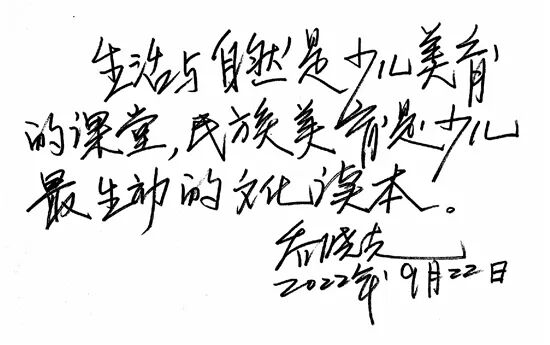 生活与自然是少儿美育
的课堂,民族美育是少儿
最生动的文化读本。
乔晓光
2022年9月22日